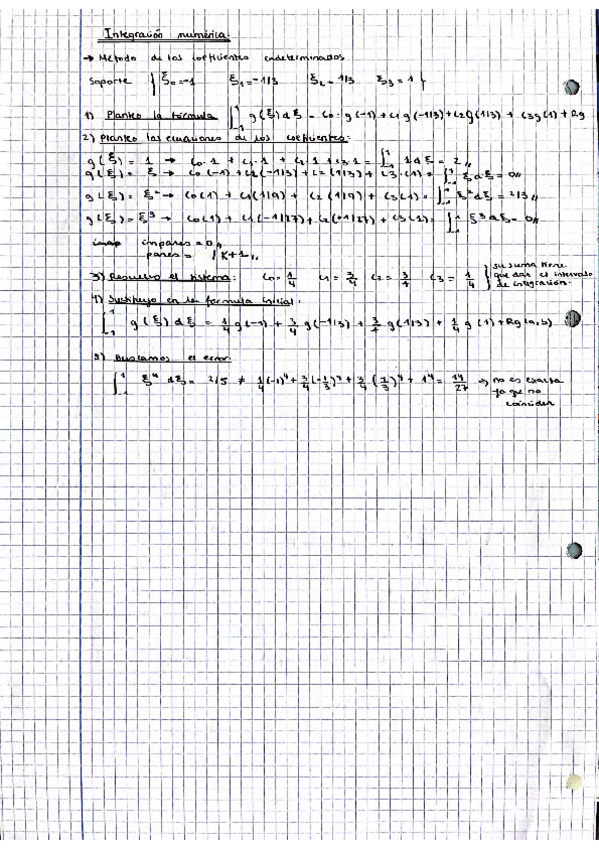 Integración numérica.
→ Método de los coeficientes indeterminados
Soporte { ξ₀=-1 ξ₁=-1/3 ξ₂= 1/3 ξ₃ = 1 }
1) Planteo la fórmula ∫₋₁¹ g(ξ)dξ = c₀·g(-1)+c₁g(-1/3)+c₂g(1/3) + c₃g(1)+Rg
2) Planteo las ecuaciones de los coeficientes:
g(ξ) = 1 → c₀·1 + c₁·1 + c₂·1 + c₃·1 = ∫₋₁¹ 1dξ = 2,,
g(ξ) = ξ → c₀(-1)+c₁(-1/3)+c₂(1/3)+c₃·(1)= ∫₋₁¹ ξdξ = 0,,
g(ξ) = ξ² → c₀(1)+c₁(1/9)+c₂(1/9)+c₃(1)= ∫₋₁¹ ξ²dξ = 2/3,,
g(ξ)=ξ³ → c₀(-1)+c₁(-1/27)+c₂(1/27)+c₃(1)= ∫₋₁¹ ξ³dξ= 0,,
impares = 0,,
pares = /K+1,,
3) Resuelvo el sistema: c₀=1/4 c₁=3/4 c₂=3/4 c₃=1/4 } su suma tiene
que dar el intervalo
de integración.
4) Sustituyo en la fórmula inicial:
∫₋₁¹ g(ξ)dξ = 1/4 g(-1) + 3/4 g(-1/3) + 3/4 g(1/3) + 1/4 g(1)+Rg(a,b)
5) Buscamos el error:
∫₋₁¹ ξ⁴ dξ = 2/5 ≠ 1/4(-1)⁴+3/4(-1/3)⁴+3/4(1/3)⁴+1⁴= 14/27 → no es exacta
ya que no
coinciden